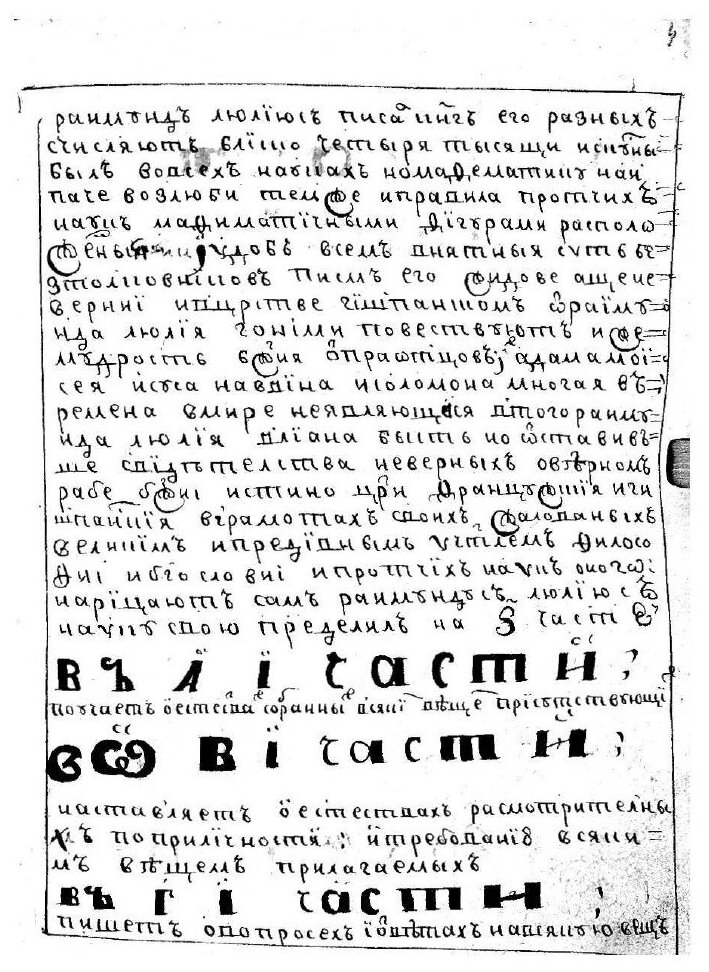 раимундъ люлїюсъ писанїи его разныхъ
счисляютъ блїско четыря тысящи искусны
былъ вовсехъ наукахъ номаѳематику наи
паче возлюби темже иправила протчихъ
наукъ маѳиматїчными ѳїгурами располо
женый удобь всемъ внятныя суть бе
зтолковнїковъ писмъ его жидове ащене
вернїи ипцрстве гїшпанском ѡраиму
нда люлїя гоними повествуютъ иже
мудрость бжїя ѿпраѡтцовъ адама мої
сея исуса навдїна исоломона многая въ
ремена вмире неявляющися ѿтогораиму
нда люлїя влїана бысть но ѡставивъ
ше свїдѣтелства неверныхъ овѣрномъ
рабе бжїи истино црїи ѳранцужскїя иги
шпанскїя вграмотах своихъ жалованыхъ
великїмъ ипредївнымъ учтлемъ ѳилосо
ѳїи ибгословїи ипротчїхъ наукъ
нарїцаютъ самъ раимундусъ люлїюсъ
науку свою пределилъ на ѯ частеи
въ а҃ ї части ;
поучаетъ оестества вещемъ прїсутствующї
вѡ в ї части ;
наставляетъ оестествахъ расмотрителны
хъ поприлїчностї ; итребованїю всяки
мъ вѣщемъ прилагаемыхъ
въ г ї части ;
пишетъ овопросехъ їѿвѣтахъ навсякую вещъ